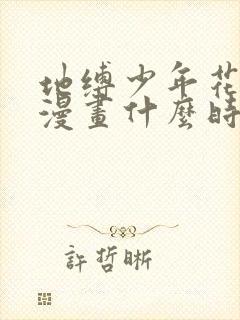 地缚少年花
漫畫什麼時
許哲晰